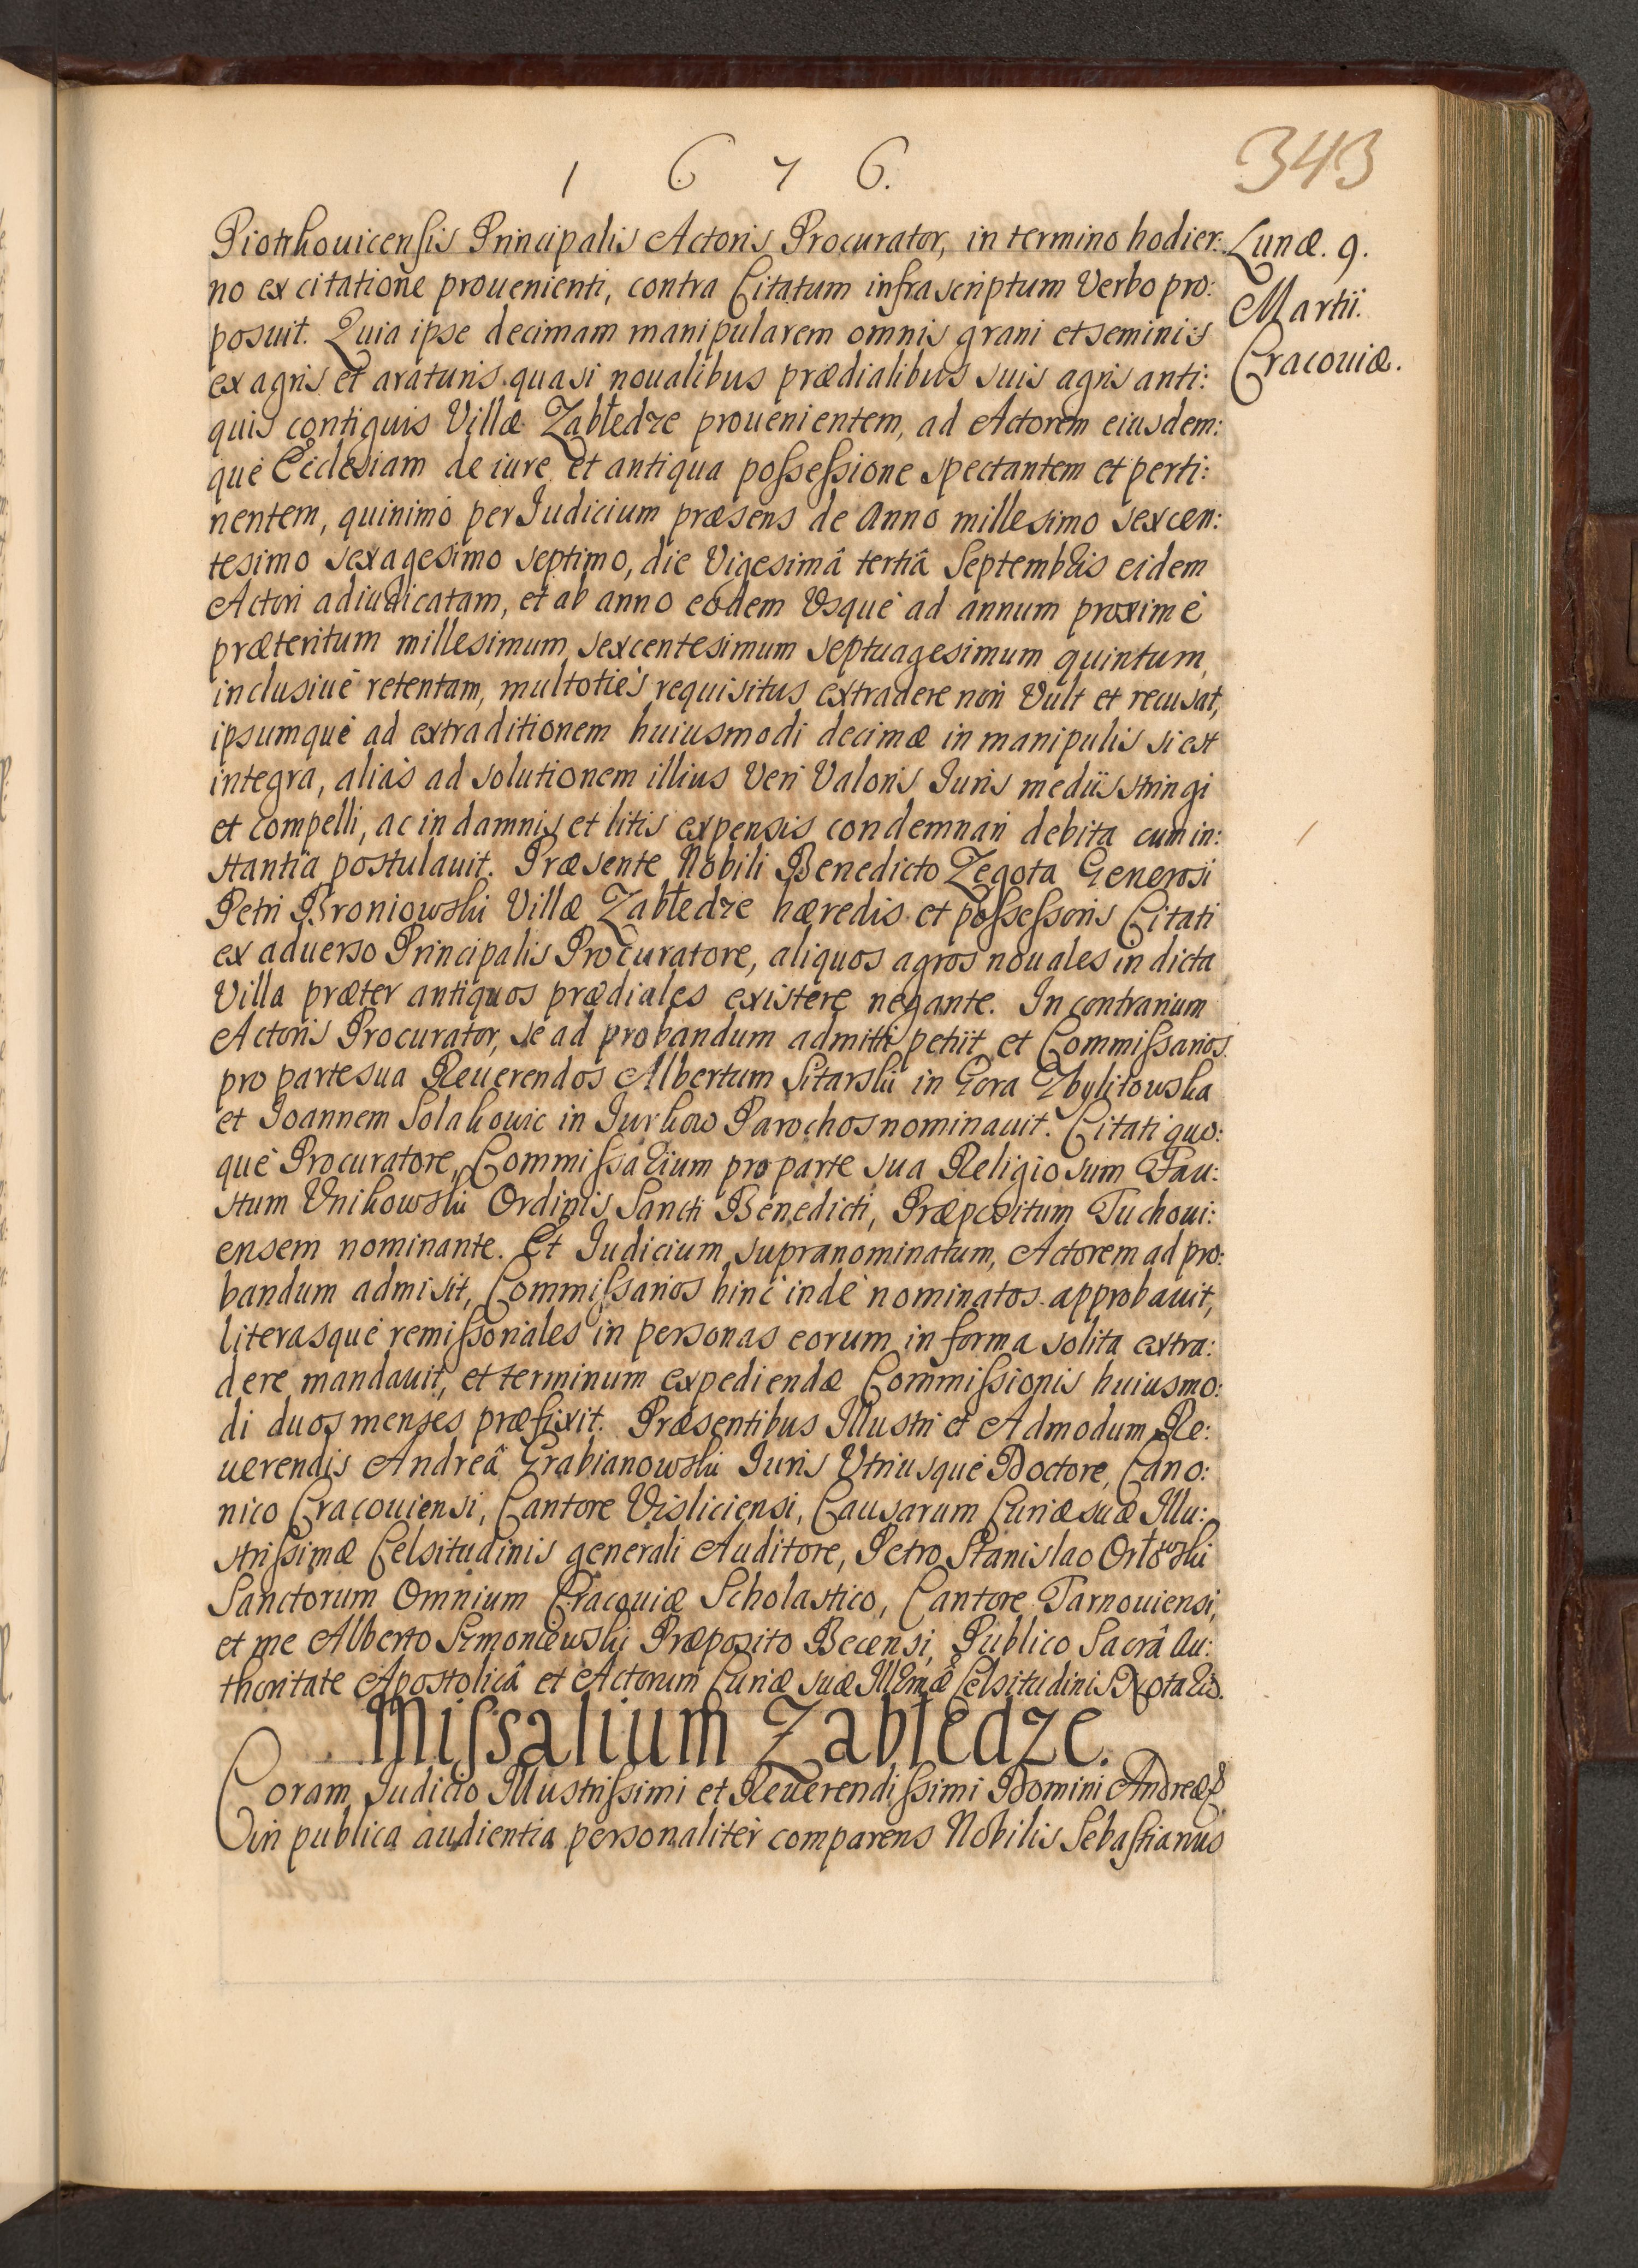 1 6 7 6.
343
Piotrkouicensis Principalis Actoris Procurator, in termino hodier:
no ex citatione prouenienti, contra Citatum infrascriptum Verbo pro:
posuit. Quia ipse decimam manipularem omnis grani et seminis
ex agris et araturis quasi noualibus prædialibus suis agris anti:
quis contiguis Villæ Zabłedze prouenientem, ad Actorem eiusdem:
què Ecclesiam de iure et antiqua possessione spectantem et perti:
nentem, quinimò per Judicium præsens de Anno millesimo sexcen:
tesimo sexagesimo septimo, die Vigesimâ tertiâ Septembris eidem
Actori adiudicatam, et ab anno eodem Vsquè ad annum proximè
præteritum millesimum sexcentesimum septuagesimum quintum,
inclusiuè retentam, multotiès requisitus extradere non Vult et recusat,
ipsumquè ad extraditionem huiusmodi decimæ in manipulis si est
integra, aliàs ad solutionem illius Veri Valoris Juris medijs stringi
et compelli, ac in damnis et litis expensis condemnari debita cum in:
stantia postulauit. Præsente Nobili Benedicto Zegota Generosi
Petri Broniowski Villæ Zabłedze hæredis et possessoris Citati
ex aduerso Principalis Procuratore, aliquos agros nouales in dicta
Villa præter antiquos prædiales existere negante. In contrarium
Actoris Procurator, se ad probandum admitti petiit et Commissarios
pro parte sua Reuerendos Albertum Sitarski in Gora Zbylitowska
et Joannem Solakowic in Jurkow Parochos nominauit. Citati quo:
què Procuratore, Commissarium pro parte sua Religiosum Fau:
stum Vnikowski Ordinis Sancti Benedicti, Præpositum Tuchoui:
ensem nominante. Et Judicium supranominatum, Actorem ad pro:
bandum admisit, Commissarios hinc indè nominatos approbauit,
literasquè remissoriales in personas eorum in forma solita extra:
dere mandauit, et terminum expediendæ Commissionis huiusmo:
di duos menses præfixit. Præsentibus Illustri et Admodum Re:
uerendis Andreâ Grabianowski Juris Vtriusquè Doctore, Cano:
nico Cracouiensi, Cantore Visliciensi, Causarum Curiæ suæ Illu:
strissimæ Celsitudinis generali Auditore, Petro Stanislao Orłowski
Sanctorum Omnium Cracouiæ Scholastico, Cantore Tarnouiensi,
et me Alberto Szmoniewski Præposito Becensi, Publico Sacrâ Au:
thoritate Apostolicâ et Actorum Curiæ suæ Illmæ Celsitudinis Notario.
Missalium Zabłedze.
Coram Judicio Illustrissimi et Reuerendissimi Domini Andreæ &
in publica audientia personaliter comparens Nobilis Sebastianus
Lunæ. 9.
Martii.
Cracouiæ.